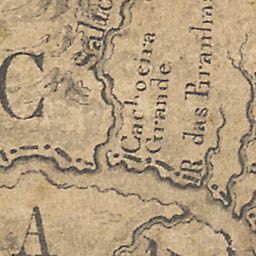 Salto
Cachoeira
Grande
R das Piranhas
C
A